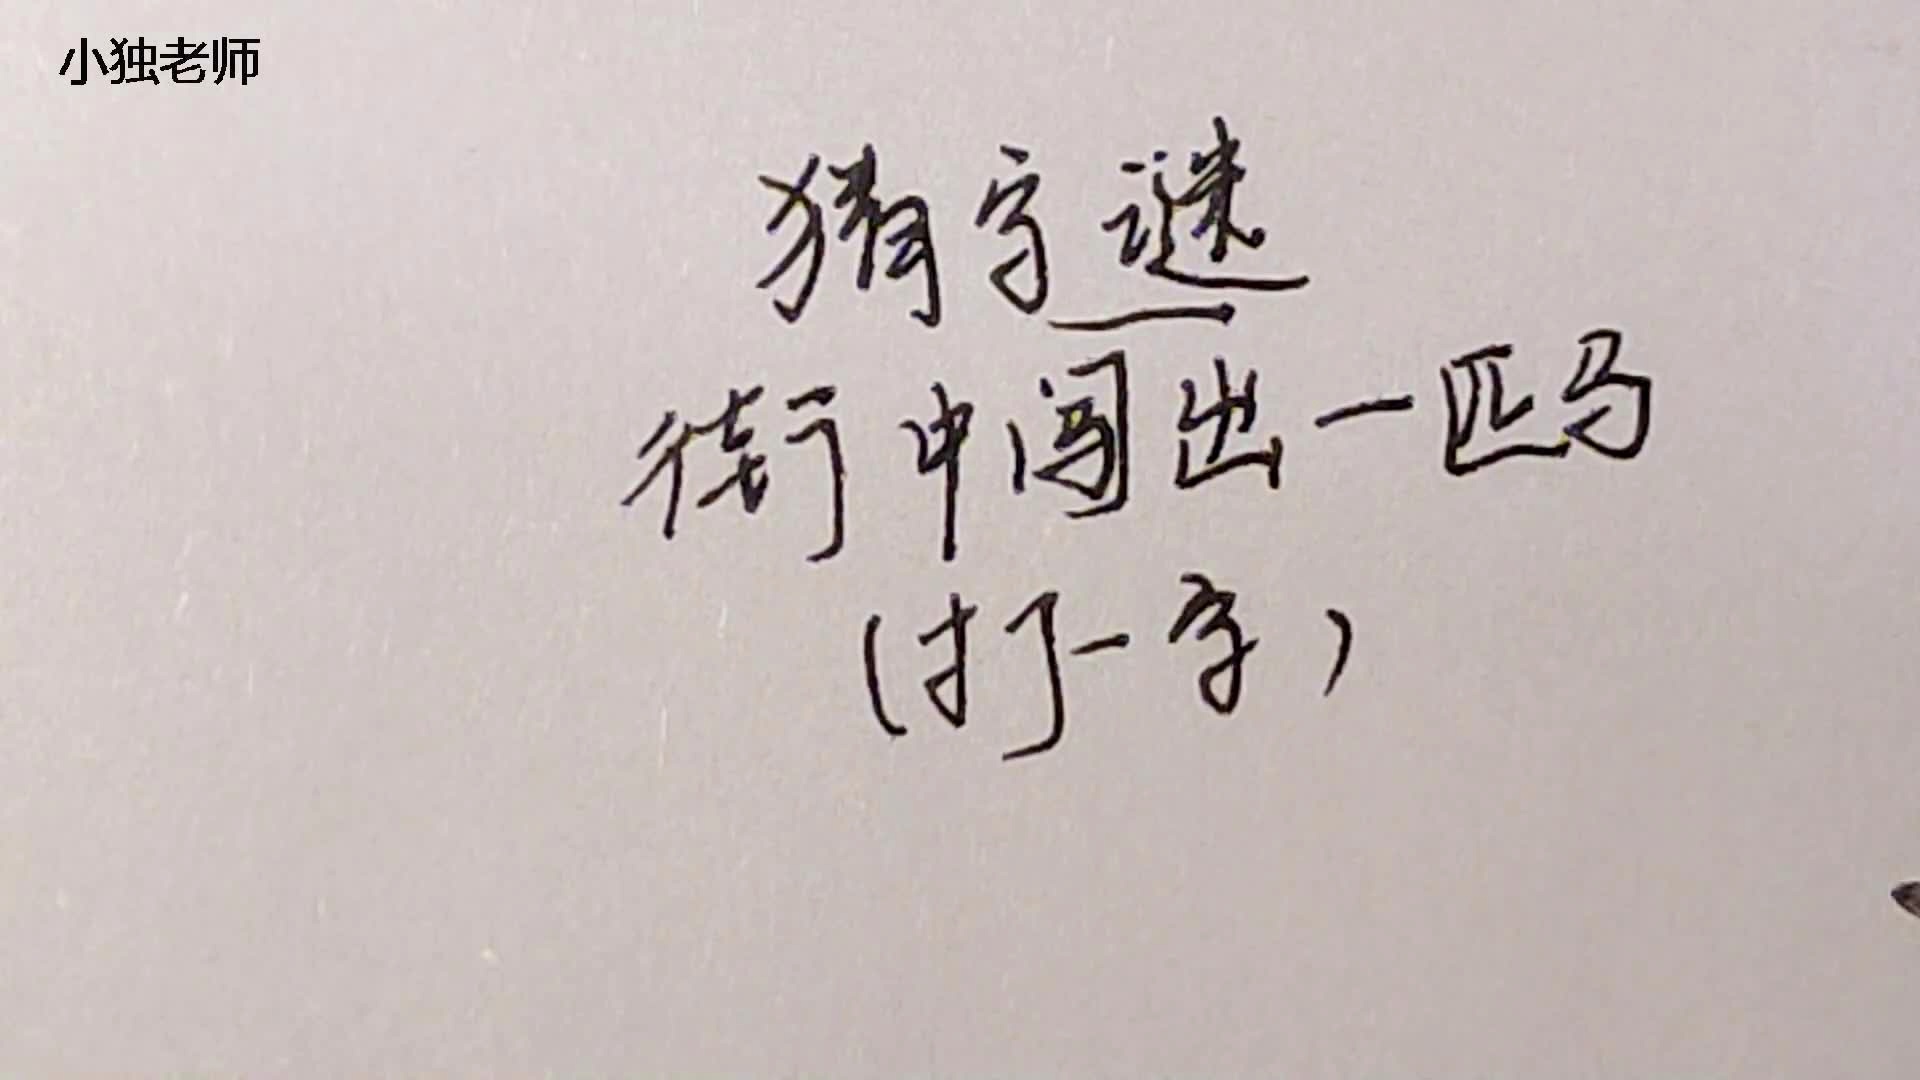 小独老师
猜字谜
街中闯出一匹马
(打一字)